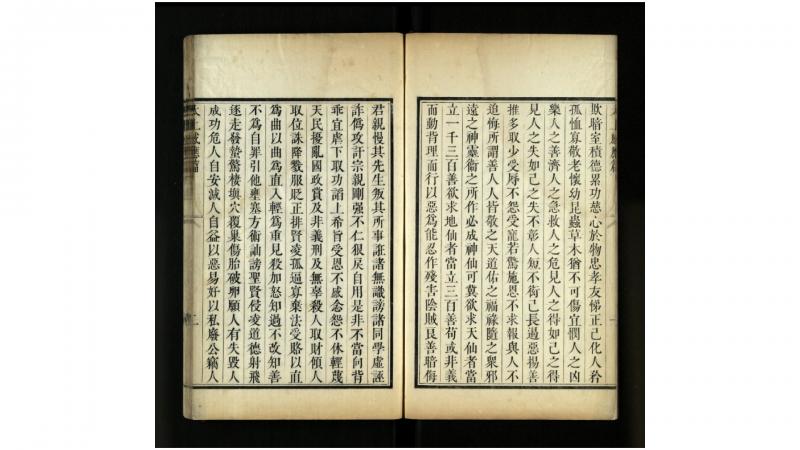 太上感應篇
欺暗室積德累功慈心於物忠孝友悌正己化人矜
孤恤寡敬老懷幼昆蟲草木猶不可傷宜憫人之凶
樂人之善濟人之急救人之危見人之得如己之得
見人之失如己之失不彰人短不衒己長遏惡揚善
推多取少受辱不怨受寵若驚施恩不求報與人不
追悔所謂善人人皆敬之天道佑之福祿隨之眾邪
遠之神靈衞之所作必成神仙可冀欲求天仙者當
立一千三百善欲求地仙者當立三百善苟或非義
而動背理而行以惡爲能忍作殘害陰賊良善暗侮
君親慢其先生叛其所事誑諸無識謗諸同學虛誣
詐僞攻訐宗親剛强不仁狠戾自用是非不當向背
乖宜虐下取功諂上希旨受恩不感念怨不休輕蔑
天民擾亂國政賞及非義刑及無辜殺人取財傾人
取位誅降戮服貶正排賢凌孤逼寡棄法受賂以直
爲曲以曲爲直入輕爲重見殺加怒知過不改知善
不爲自罪引他壅塞方術訕謗聖賢侵凌道德射飛
逐走發蟄驚棲塡穴覆巢傷胎破卵願人有失毀人
成功危人自安減人自益以惡易好以私廢公竊人
太上感應篇
二